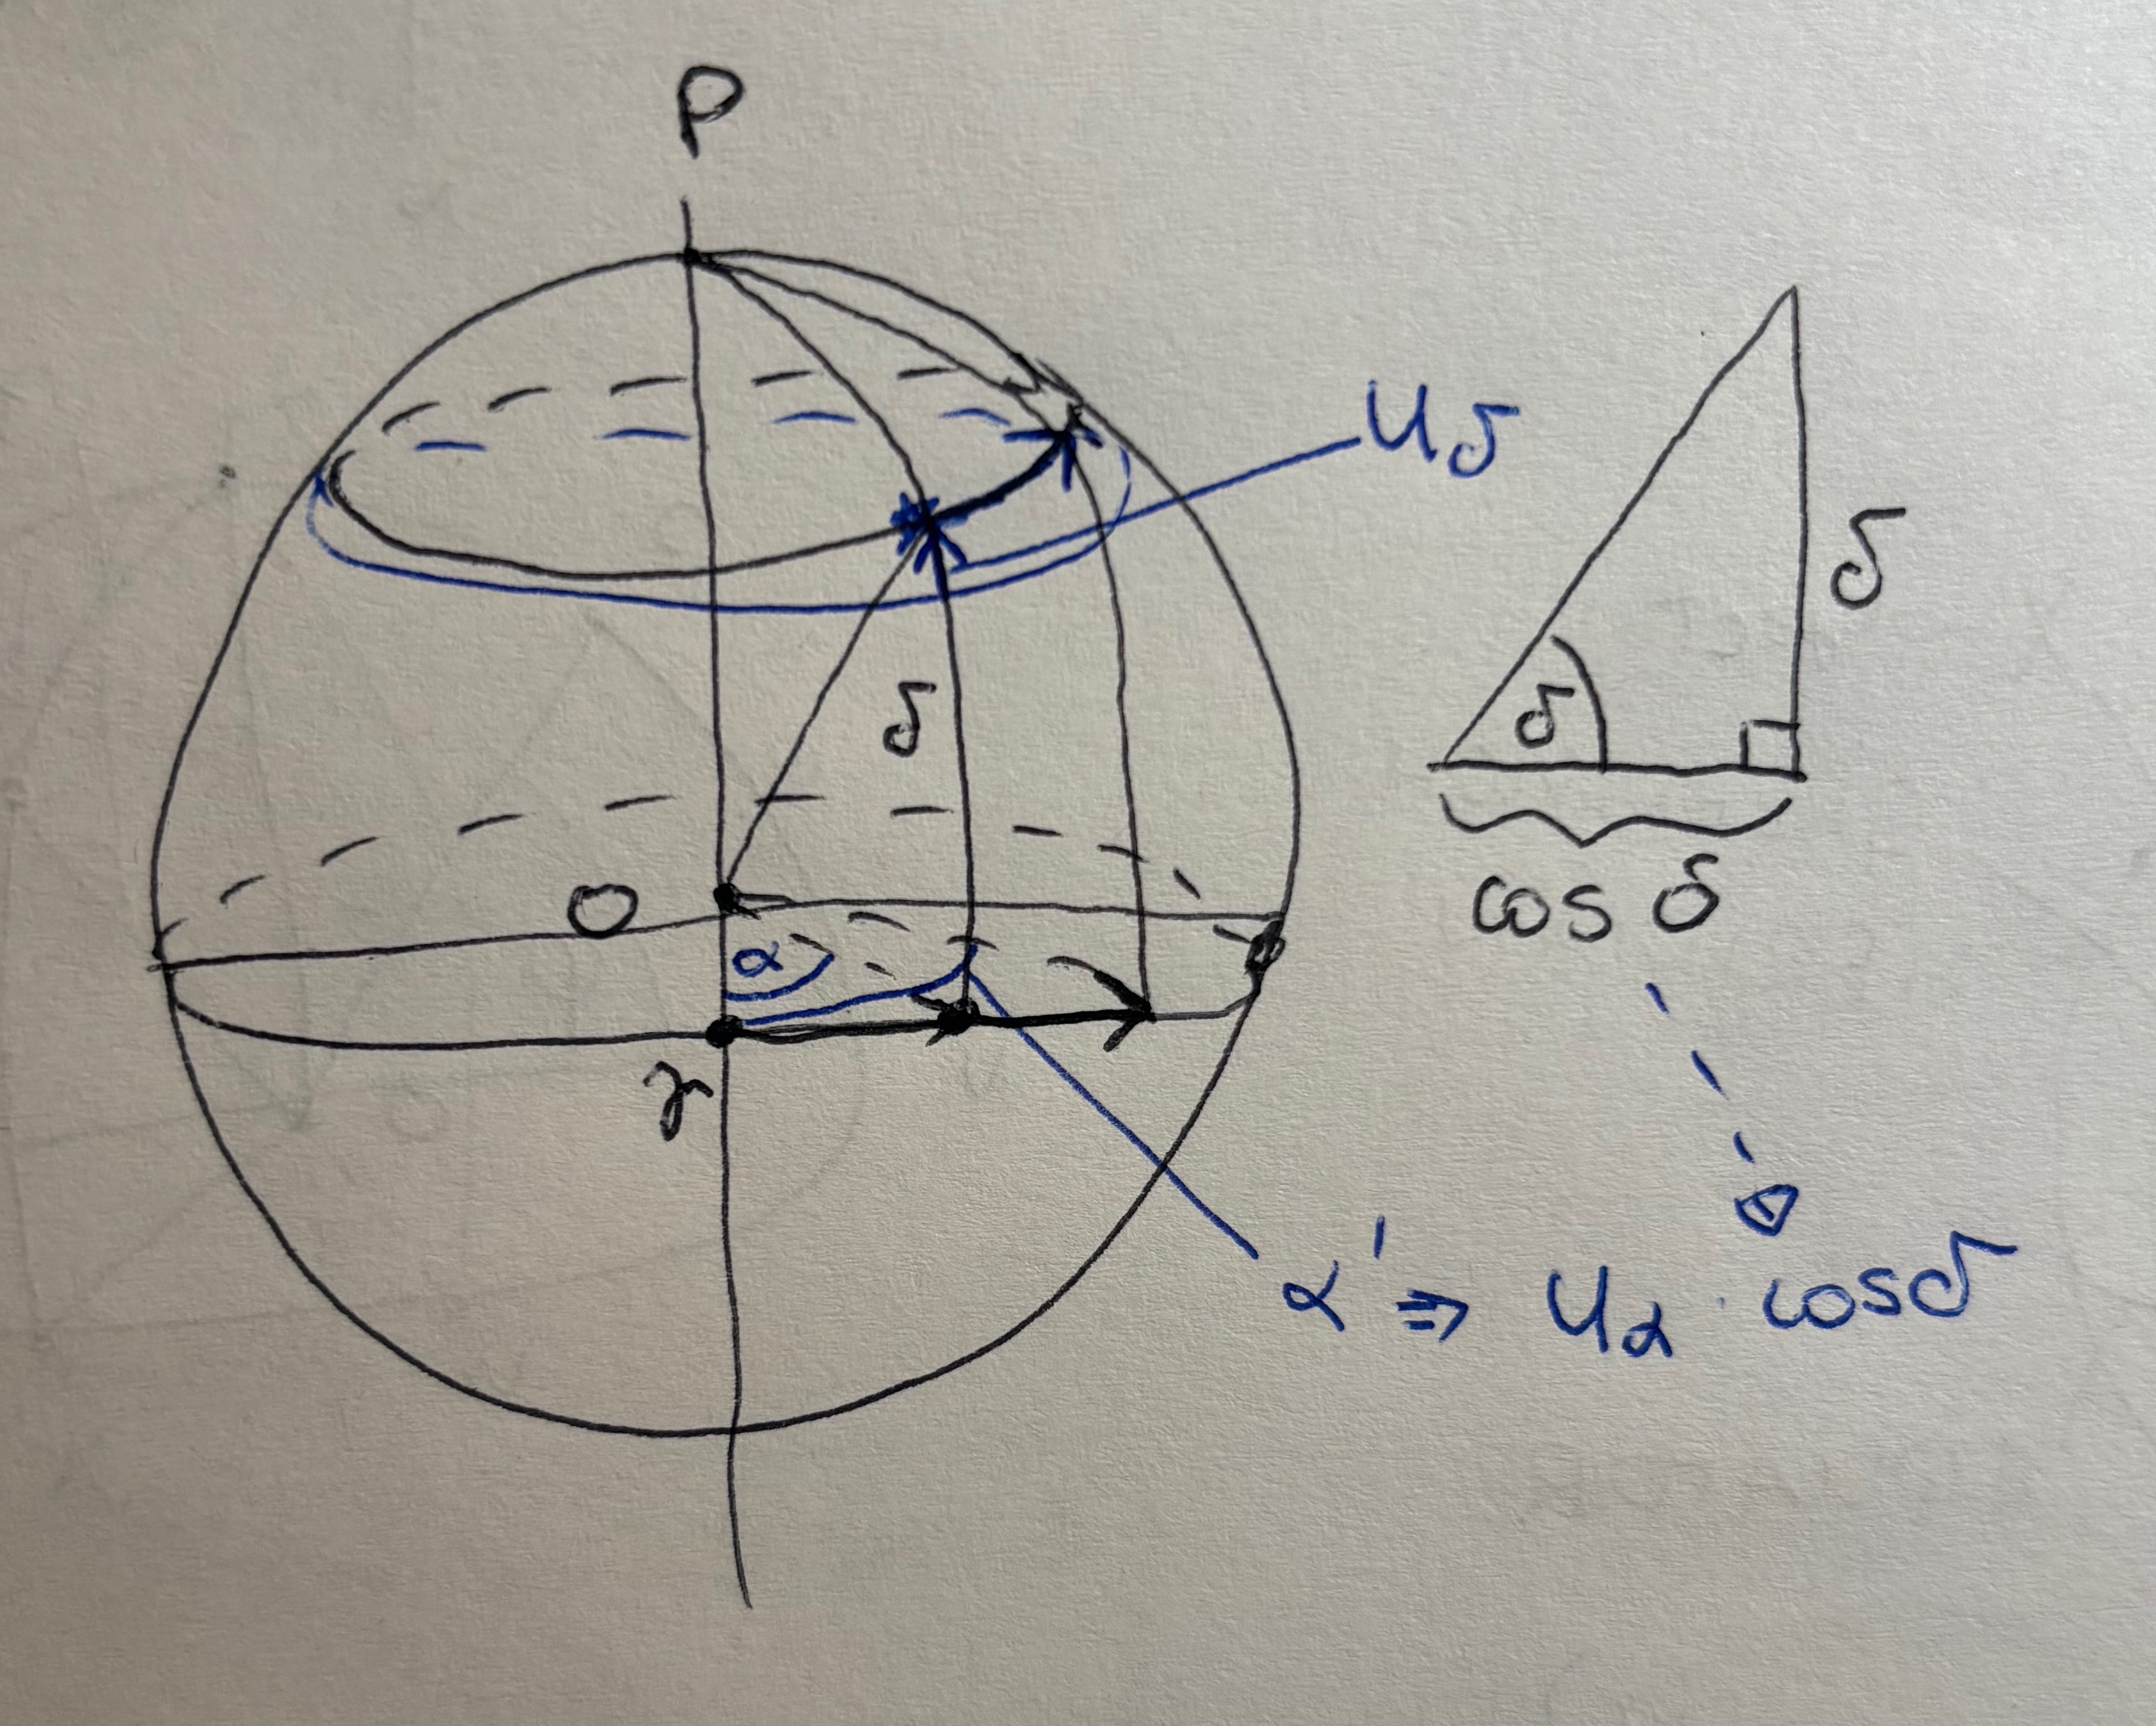 P
μδ
δ
δ
δ
O
cos δ
α
γ
α' ⇒ μα · cosδ